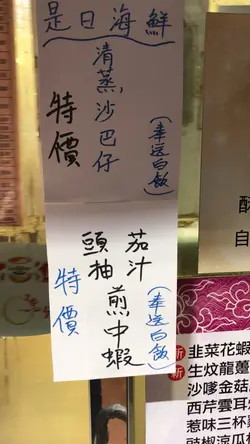 是日海鮮
清蒸沙巴仔
(奉送白飯)
特價
茄汁
頭抽
煎中蝦
(奉送白飯)
特價
自
新 韭菜花蝦
新 生炆龍躉
沙嗲金菇
西芹雲耳
惹味三杯
豉椒涼瓜